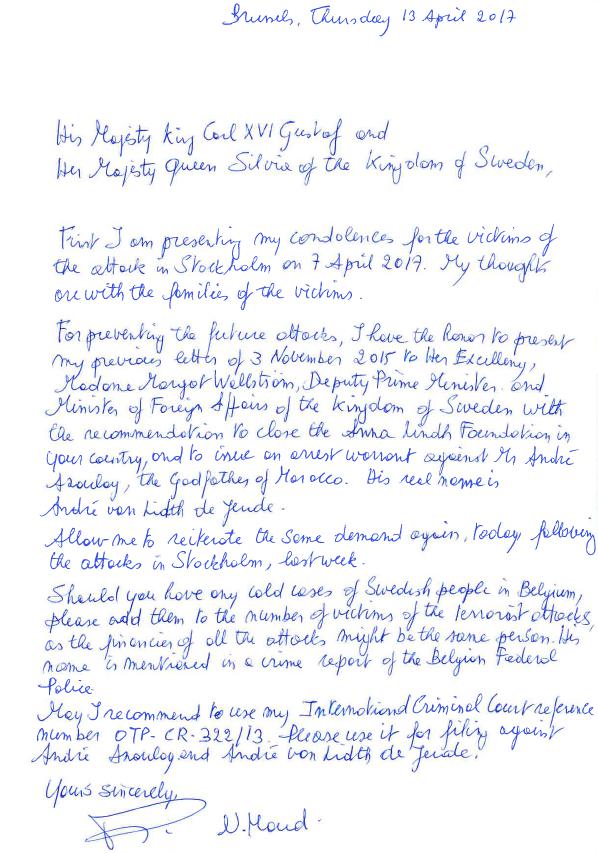 Brussels, Thursday 13 April 2017
His Majesty King Carl XVI Gustaf and
Her Majesty Queen Silvia of the Kingdom of Sweden,
First I am presenting my condolences for the victims of
the attack in Stockholm on 7 April 2017. My thoughts
are with the families of the victims.
For preventing the future attacks, I have the honor to present
my previous letter of 3 November 2015 to Her Excellency,
Madame Margot Wallström, Deputy Prime Minister and
Minister of Foreign Affairs of the Kingdom of Sweden with
the recommendation to close the Anna Lindh Foundation in
your country, and to issue an arrest warrant against Mr André
Azoulay, the Godfather of Morocco. His real name is
André van Lidth de Jeude.
Allow me to reiterate the same demand again, today following
the attacks in Stockholm, last week.
Should you have any cold cases of Swedish people in Belgium,
please add them to the number of victims of the terrorist attacks,
as the financier of all the attacks might be the same person. His
name is mentioned in a crime report of the Belgian Federal
Police.
May I recommend to use my International Criminal Court reference
number OTP-CR-322/13. Please use it for filing against
André Azoulay and André van Lidth de Jeude.
Yours sincerely,